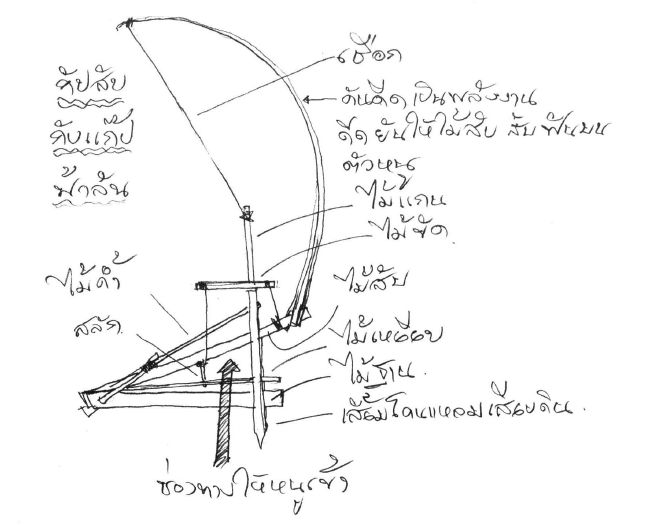 กับสับ
กับแก๊ป
ฟ้าลั่น
เชือก
คันดีด เป็นพลังงาน
ดีด ยันให้ไม้สับ สับ ฟันบน
ตัวหนู
ไม้แกน
ไม้ขัด
ไม้ค้ำ
สลัก
ไม้สับ
ไม้เหยียบ
ไม้ฐาน
เสี้ยมโคนแหลมเสียบดิน
ช่องทางให้หนูเข้า